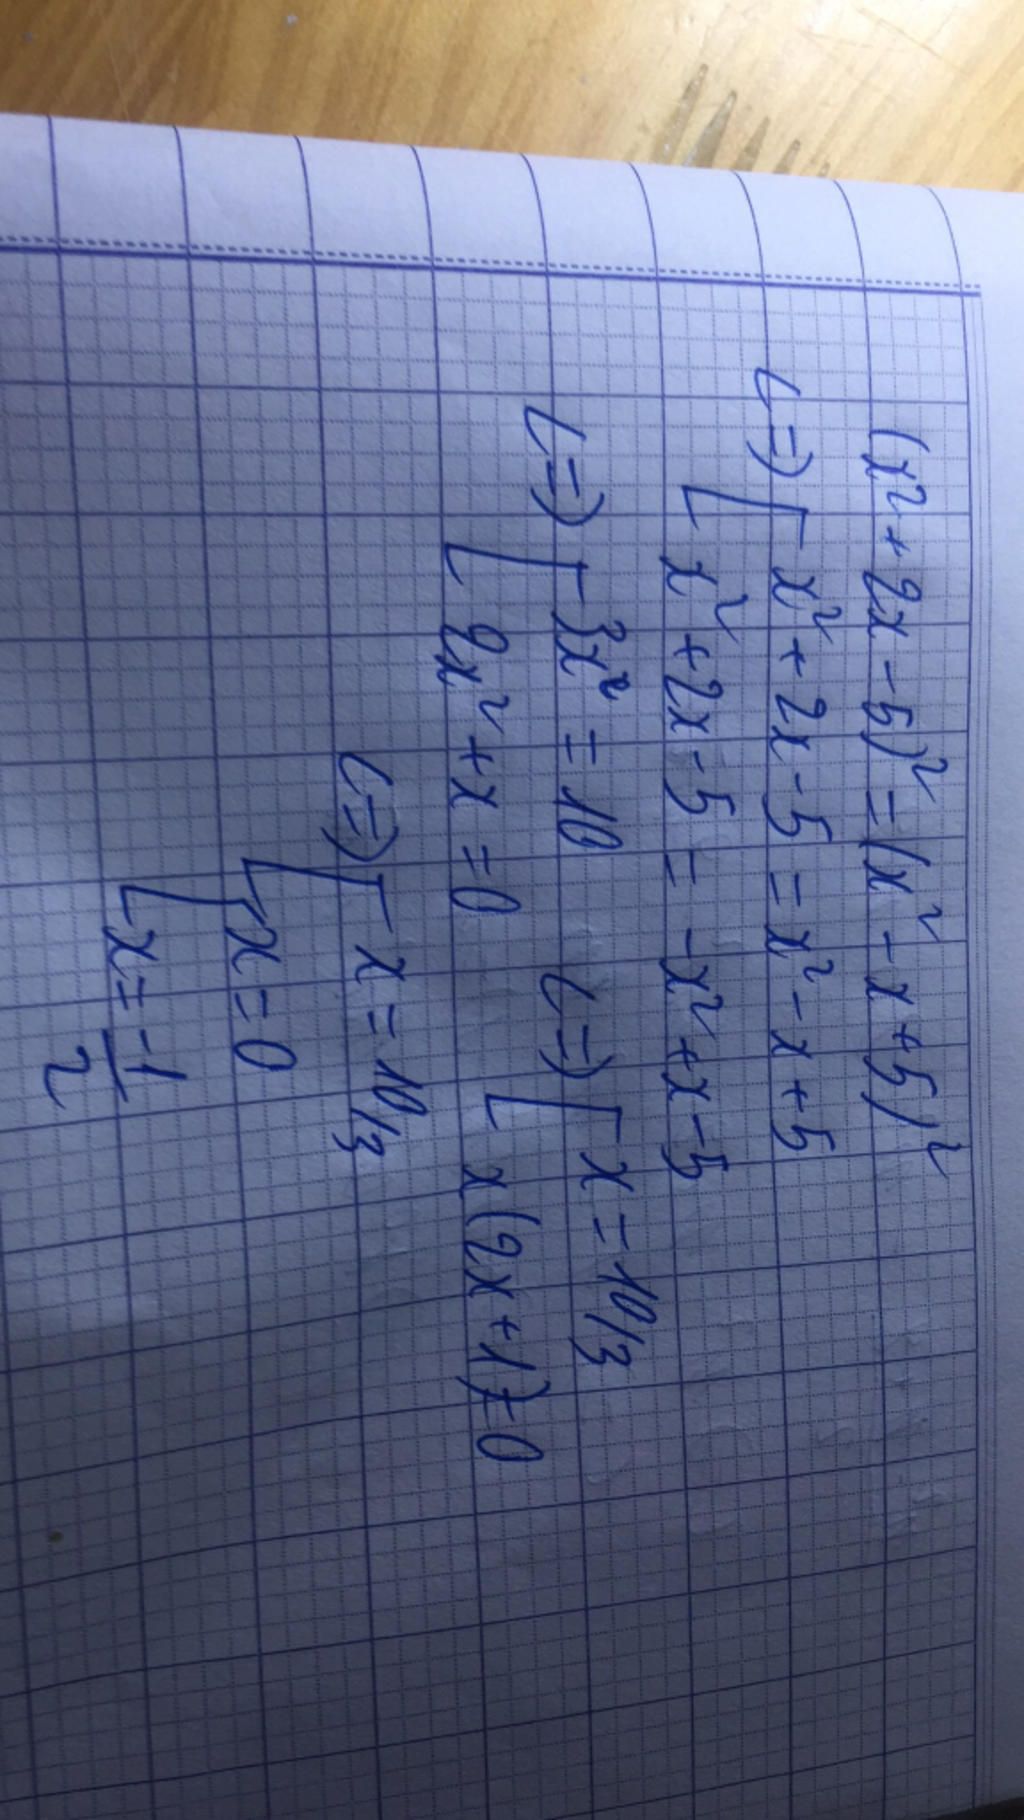 (x² + 2x - 5)² = (x² - x + 5)²
<=> [ x² + 2x - 5 = x² - x + 5
[ x² + 2x - 5 = -x² + x - 5
<=> [ 3x² = 10 <=> [ x = 10/3
[ 2x² + x = 0 [ x(2x + 1) = 0
<=> [ x = 10/3
[ x = 0
[ x = -1/2